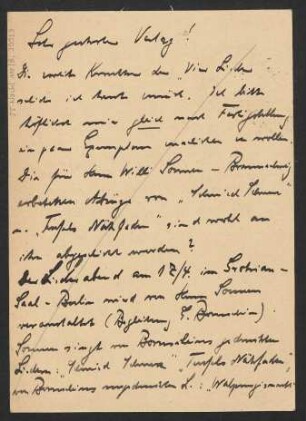 Sehr geehrter Verlag!
Die zweite Korrektur der "Vier Lieder"
schicke ich heute zurück. Ich bitte
höflichst mir gleich nach Fertigstellung
ein paar Exemplare zuschicken zu wollen.
Die für Herrn Willi Sonnen - Braunschweig
erbetenen Abzüge von "Schmied Schmerz"
u. "Teufels Nähfaden" sind wohl an
ihn abgeschickt worden?
Der Liederabend am 17/4. im
Saal - Berlin wird von Herrn Sonnen
veranstaltet (Begleitung).
Sonnen singt von gedruckten
Liedern: "Schmied Schmerz" "Teufels Nähfaden",
von ungedruckten L.: "Walpurgisnacht"